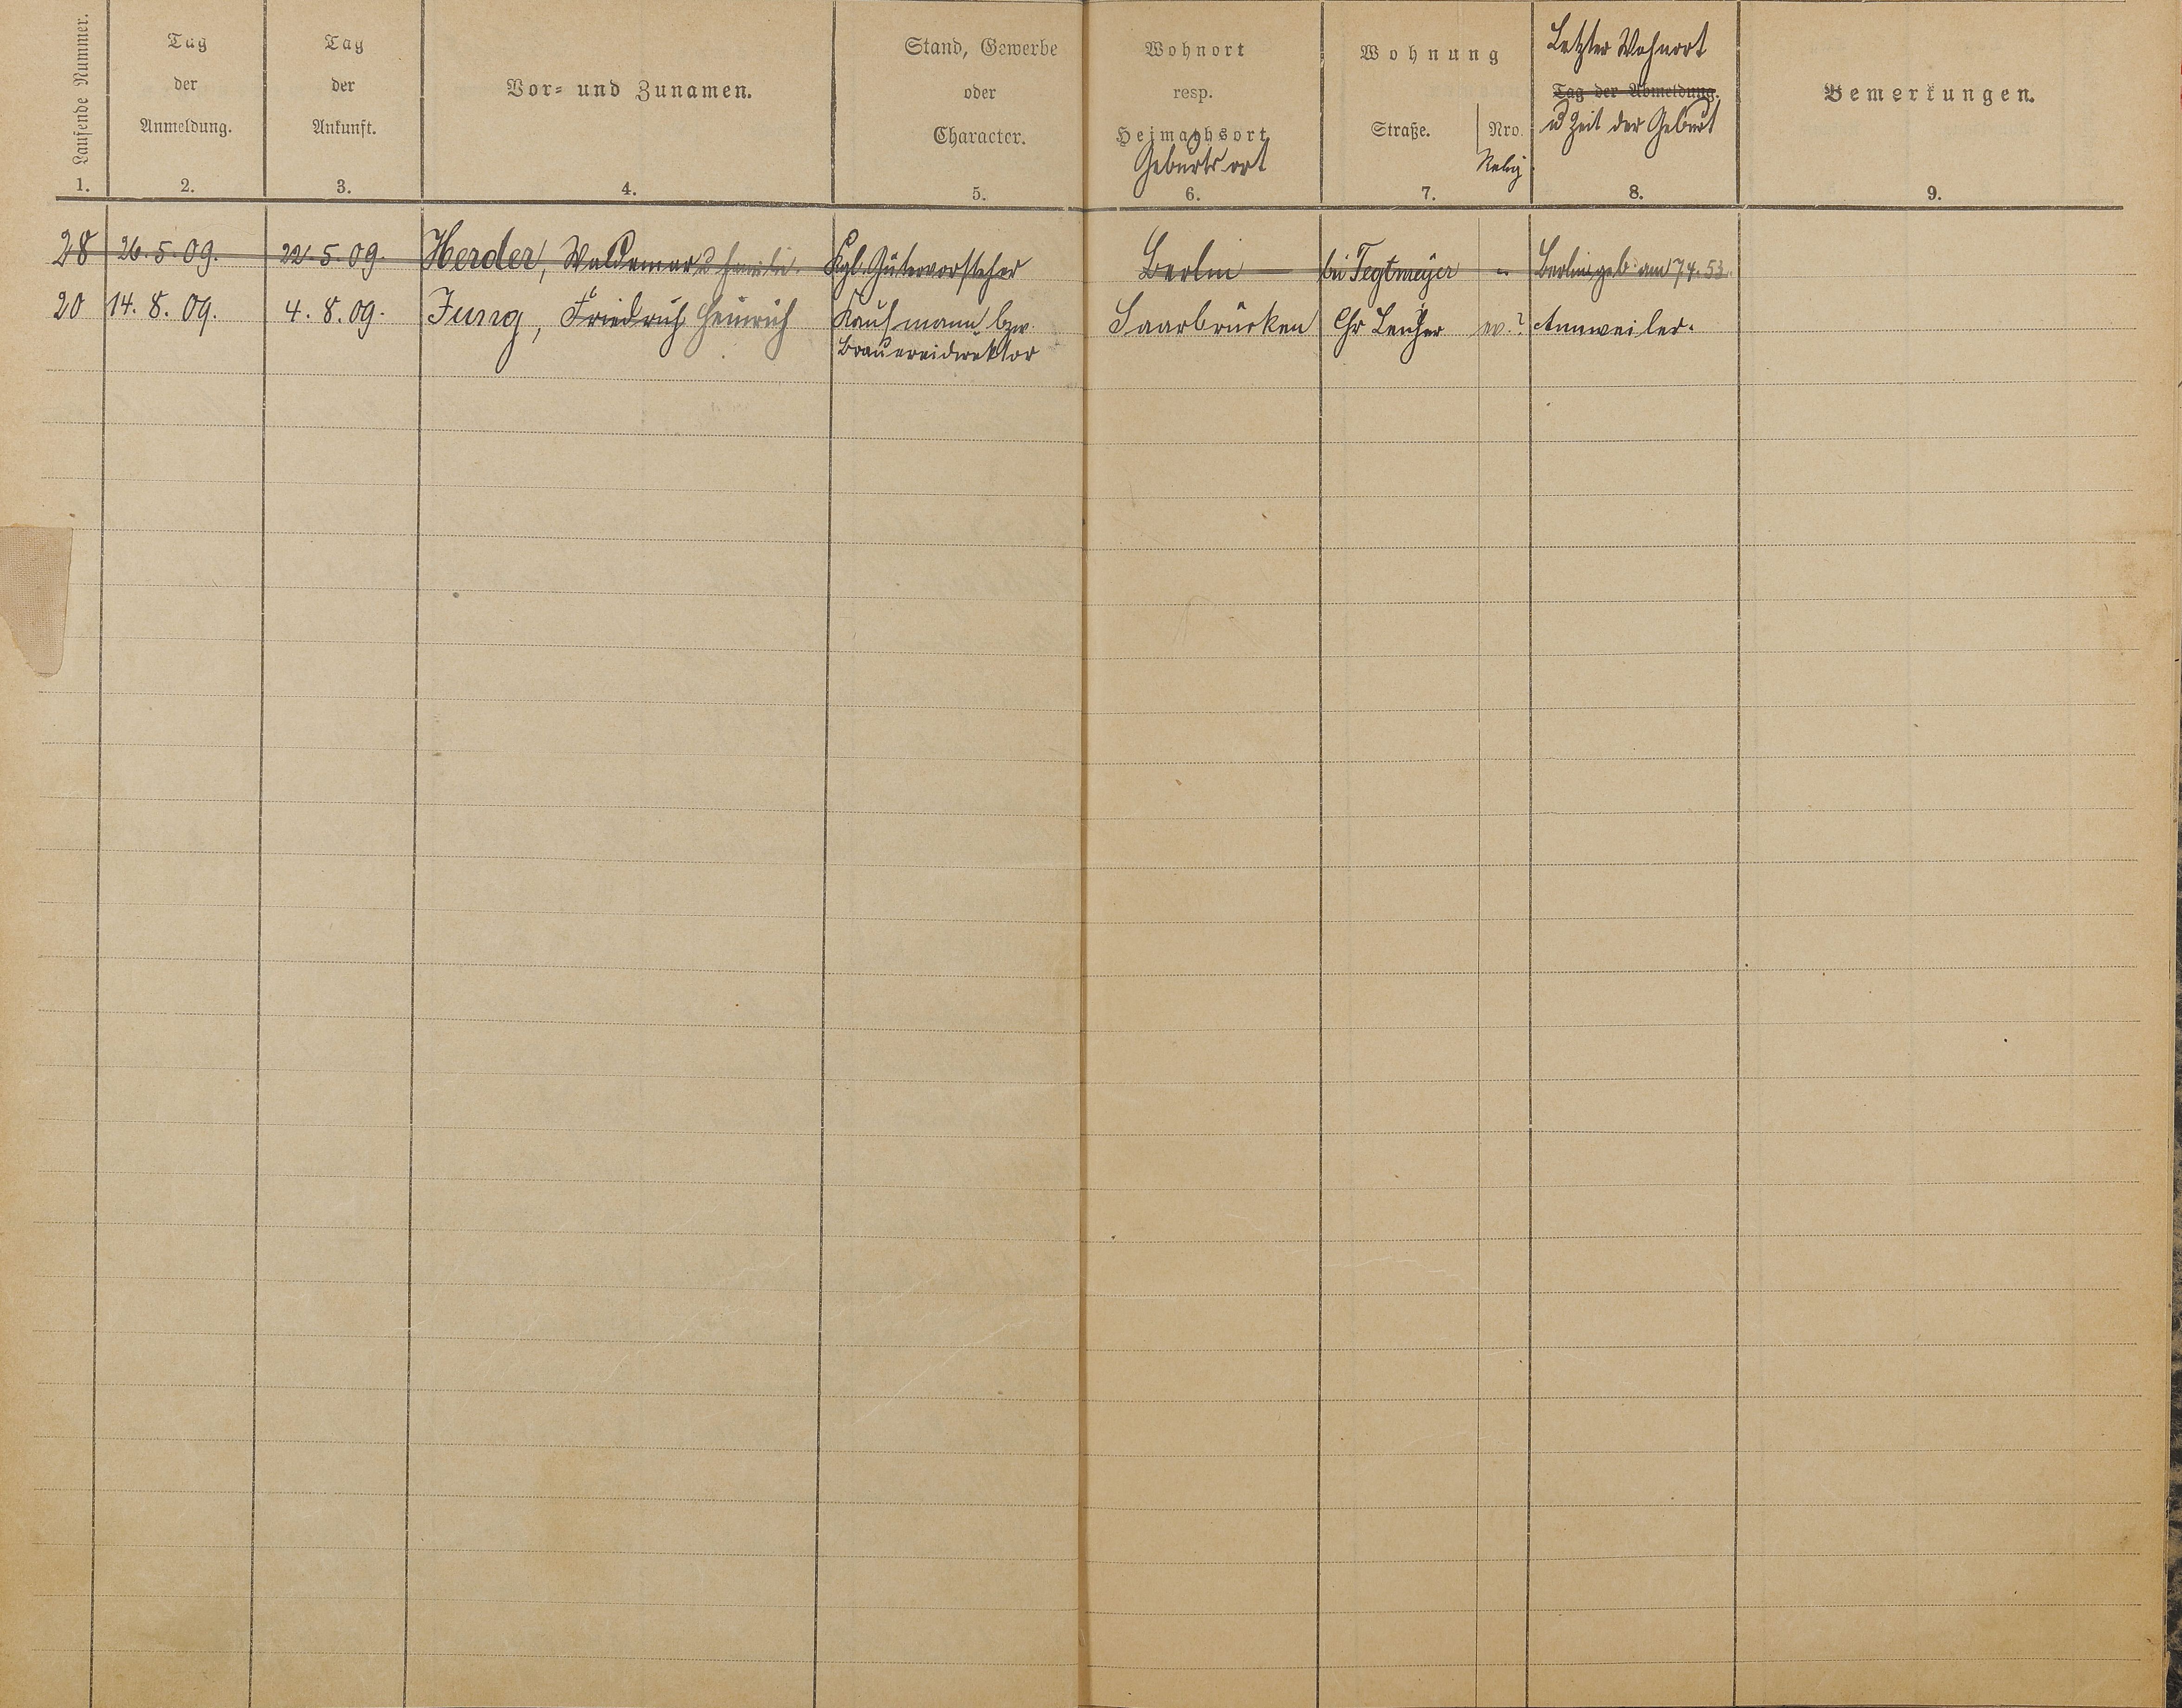 Laufende Nummer.
1.
Tag
der
Anmeldung.
2.
Tag
der
Ankunft.
3.
Vor- und Zunamen.
4.
Stand, Gewerbe
oder
Character.
5.
Wohnort
resp.
Heimathsort
Geburtsort
6.
Wohnung
Straße.
Nro.
Relig
7.
Letzter Wohnort
Tag der Abmeldung.
u Zeit der Geburt
8.
Bemerkungen.
9.
28 26. 5. 09. 22. 5. 09. Herder, Waldemar u Kgl. Gütervorsteher Berlin bei Tegtmeyer " Berlin geb. am 7.4.53.
20 14. 8. 09. 4. 8. 09. Jung, Friedrich Heinrich Kaufmann bzw. Saarbrücken Chr ev.? Annweiler.
Brauereidirektor